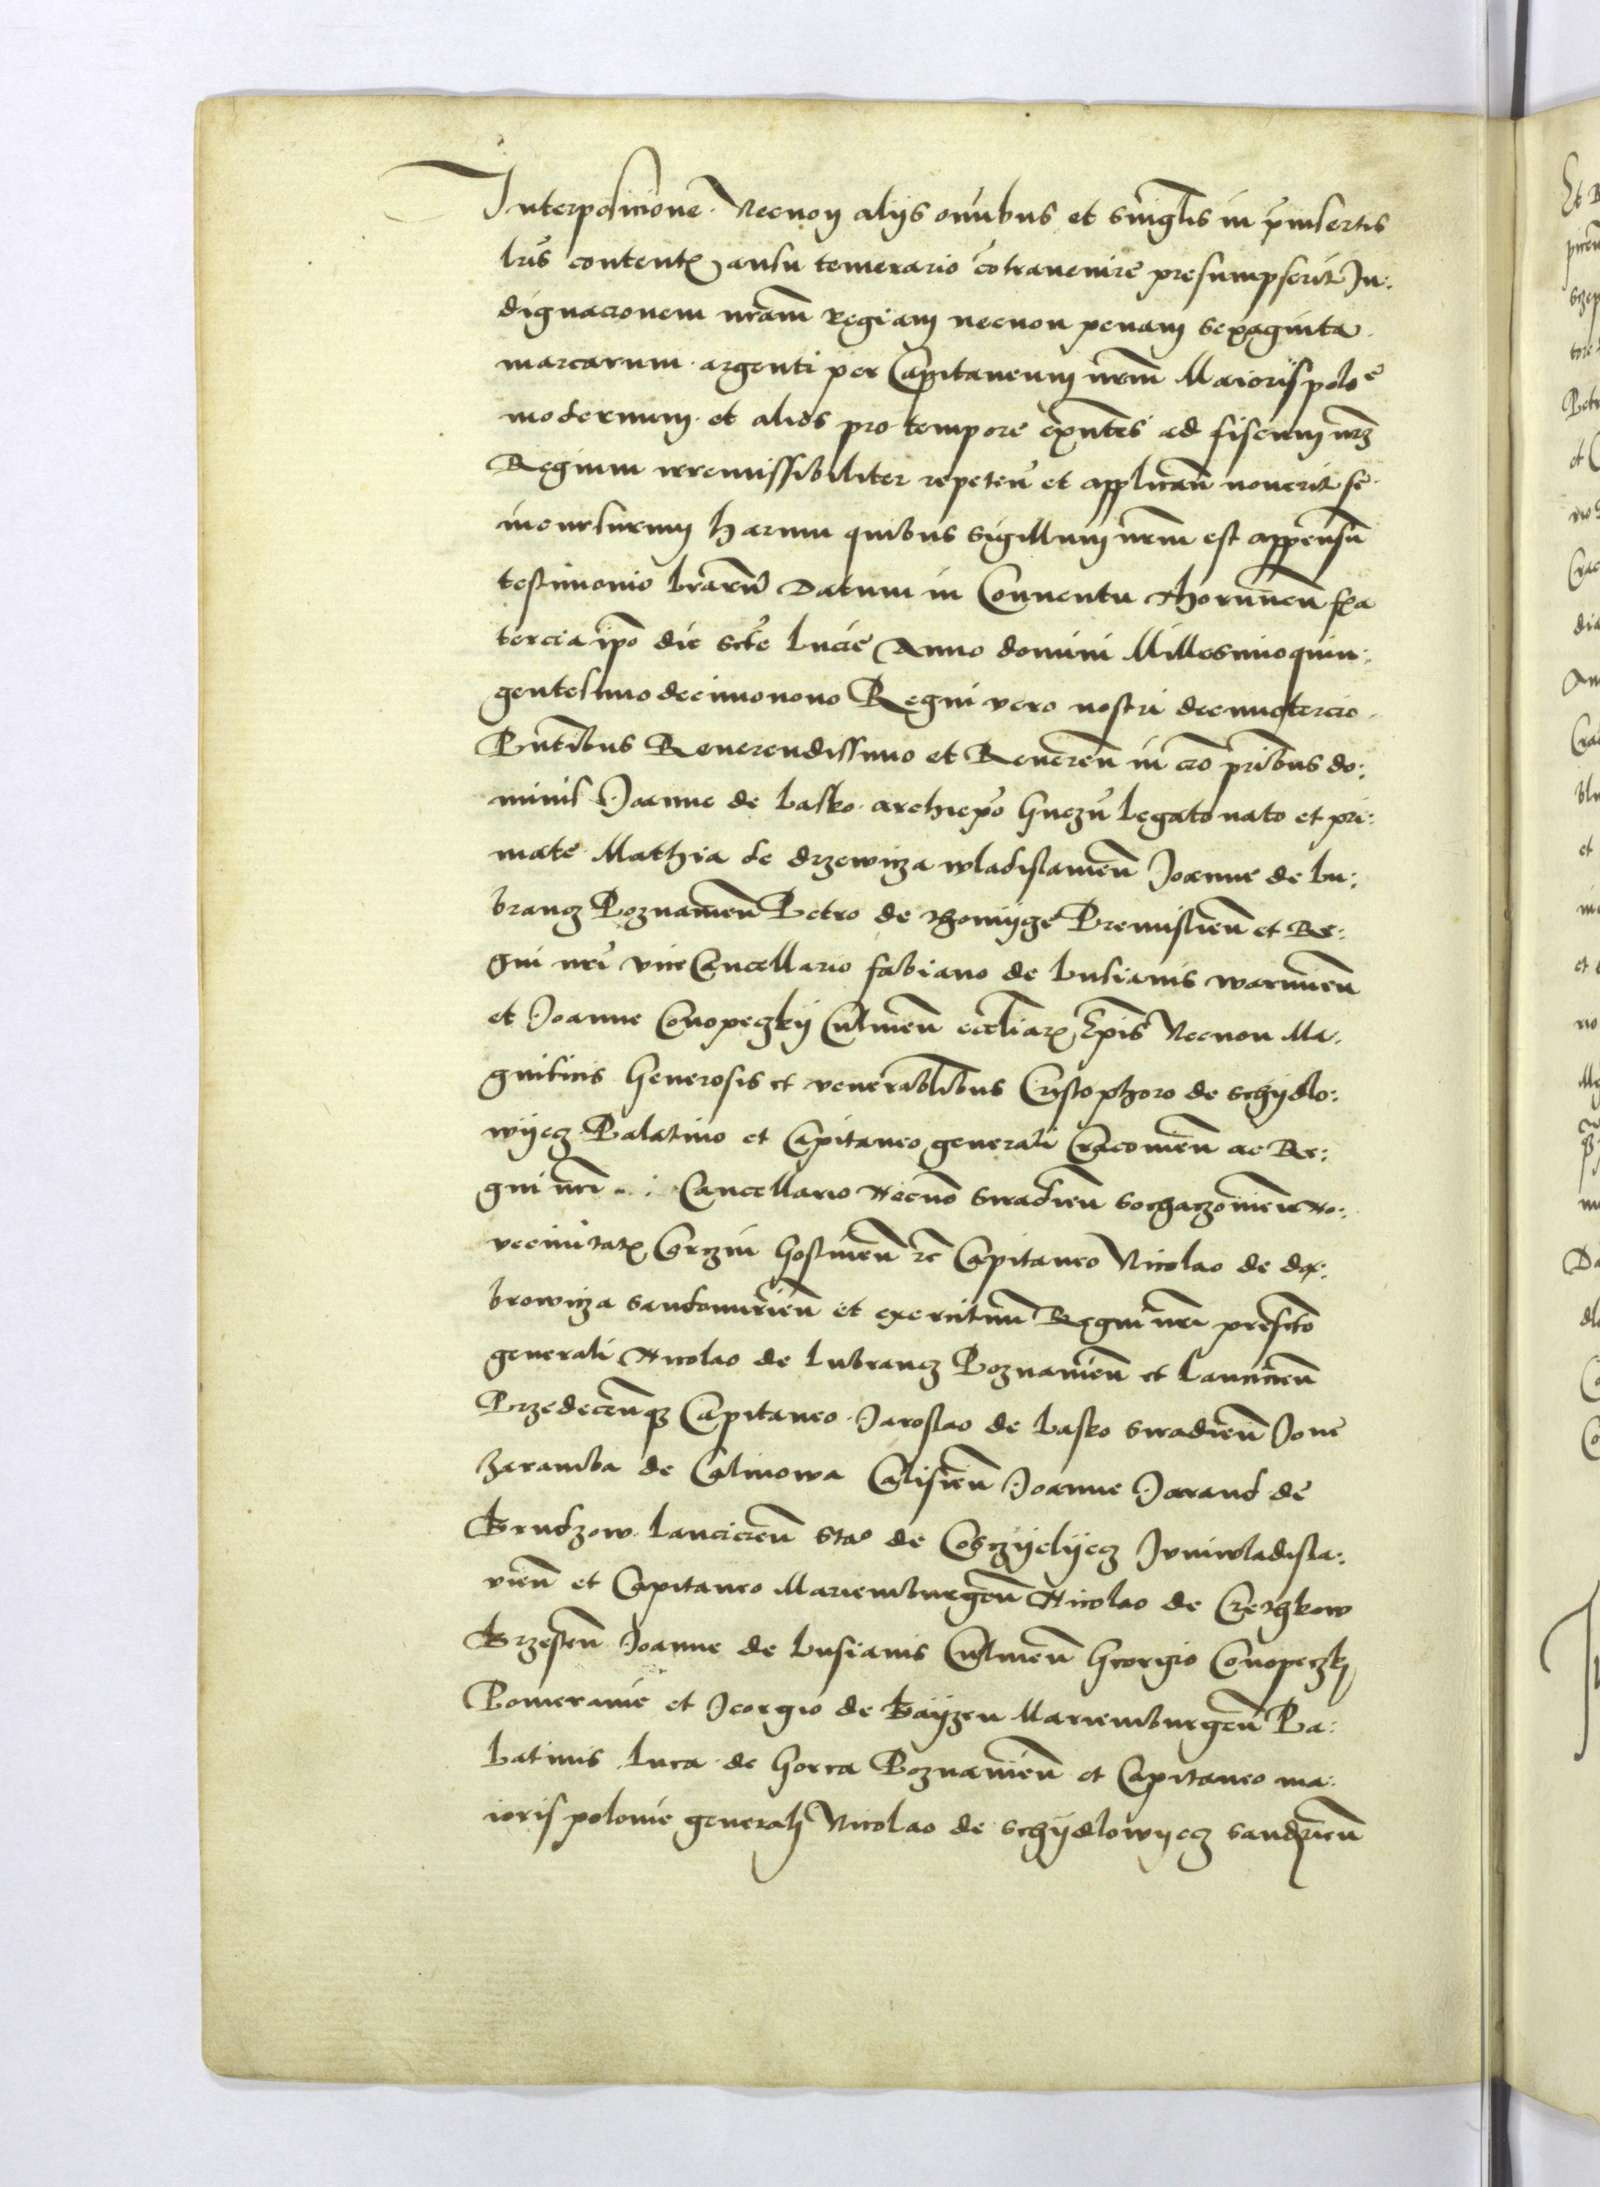 Interposicione. Necnon alijs om̄ibus et sing̃lis in p̃insertis
l̃ris content(is) ausu temerario cõtravenire presumpserit In:
dignacionem nr̃am regiam necnon penam sexaginta
marcarum argenti per Capitaneum nr̃m Maioris poloē
modernum et alios pro tempore exñtes ad fiscum nr̃m
Regium irremissibiliter repeteñ et applicañ noverit se
incursurum harum quibus sigillum nr̃m est appensũ
testimonio l̃rarũ Datum in Conventu Thoruneñ f(er)ia
tercia ip̃o die sctẽ Lucie Anno domini Millesimoquin:
gentesimo decimonono Regni vero nostri decimotercio
Pñtibus Reverendissimo et Revereñ in cr̃o pr̃ibus do:
minis Joanne de Lasko archiep̃o Gnezñ Legato nato et pri:
mate Mathia de drzewicza wladislavieñ Joanne de Lu:
brancz Poznanieñ Petro de Thomijge Premislieñ et Re:
gni nr̃i vice Cancellario fabiano de Lusianis warmieñ
et Joanne Conopeczkij Culmeñ eccl̃iar(um) Ep̃is Necnon Ma.
gnificis Generosis et venerabilibus Cristophoro de Schijdlo:
wijecz Palatino et Capitaneo generali Cracovieñ ac Re:
gni nr̃i ... Cancellario Necnõ siradieñ sochaczovieñ No:
vecivitat(is) Corczin Gostineñ rc̃ Capitaneo Nicolao de dą:
browicza sandomirieñ et exercituũ Regni nr̃i prefc̃to
generali Nicolao de Lubrancz Poznanieñ et Lancicieñ
Przedeceñq(ue) Capitaneo Jaroslao de Lasko siradieñ Joñe
Zaramba de Calinowa Calisieñ Joanne Jarand de
Brudzow Lancicieñ Stao de Cosczijelijecz Juniwladisla:
vieñ et Capitaneo Marienburgeñ Nicolao de Crezhkow
Brzesteñ Joanne de Lusianis Culmeñ Georgio Conopeczkj
Pomeranie et Jeorgio de Baijzen Marienburgeñ Pa:
latinis Luca de Gorca Poznanieñ et Capitaneo ma:
ioris polonie generalj Nicolao de Schijdlowyecz sandr̃ieñ